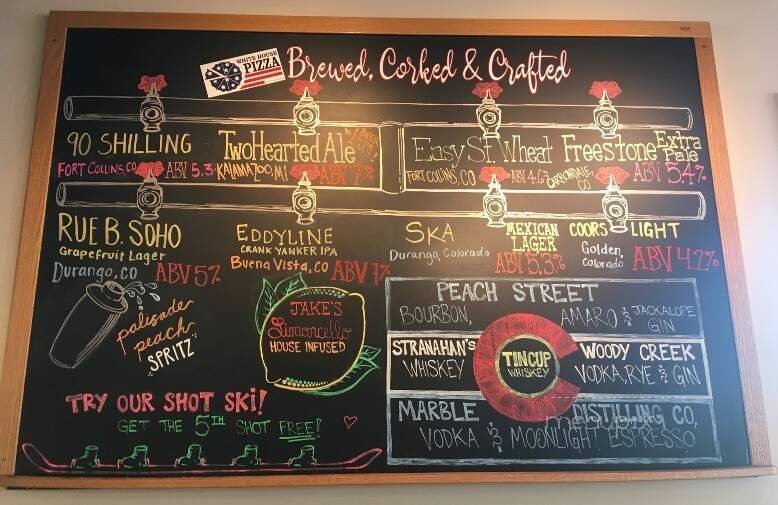 WHITE HOUSE
PIZZA
Brewed, Corked & Crafted
90 SHILLING
FORT COLLINS, CO ABV 5.3
Two Hearted Ale
KALAMAZOO, MI ABV 7%
Easy St. Wheat
FORT COLLINS, CO ABV 4.6%
Freestone Extra Pale
CARBONDALE, CO ABV 5.4%
RUE B. SOHO
Grapefruit Lager
Durango, CO ABV 5%
EDDYLINE
CRANK YANKER IPA
Buena Vista, CO ABV 7%
SKA MEXICAN LAGER
Durango, Colorado ABV 5.3%
COORS LIGHT
Golden, Colorado ABV 4.2%
palisade
peach
SPRITZ
JAKE'S
Limoncello
HOUSE INFUSED
TRY OUR SHOT SKI!
GET THE 5TH SHOT FREE!
PEACH STREET
BOURBON, AMARO & JACKALOPE GIN
STRANAHAN'S
WHISKEY
TINCUP
WHISKEY
WOODY CREEK
VODKA, RYE & GIN
MARBLE DISTILLING CO.
VODKA & MOONLIGHT ESPRESSO